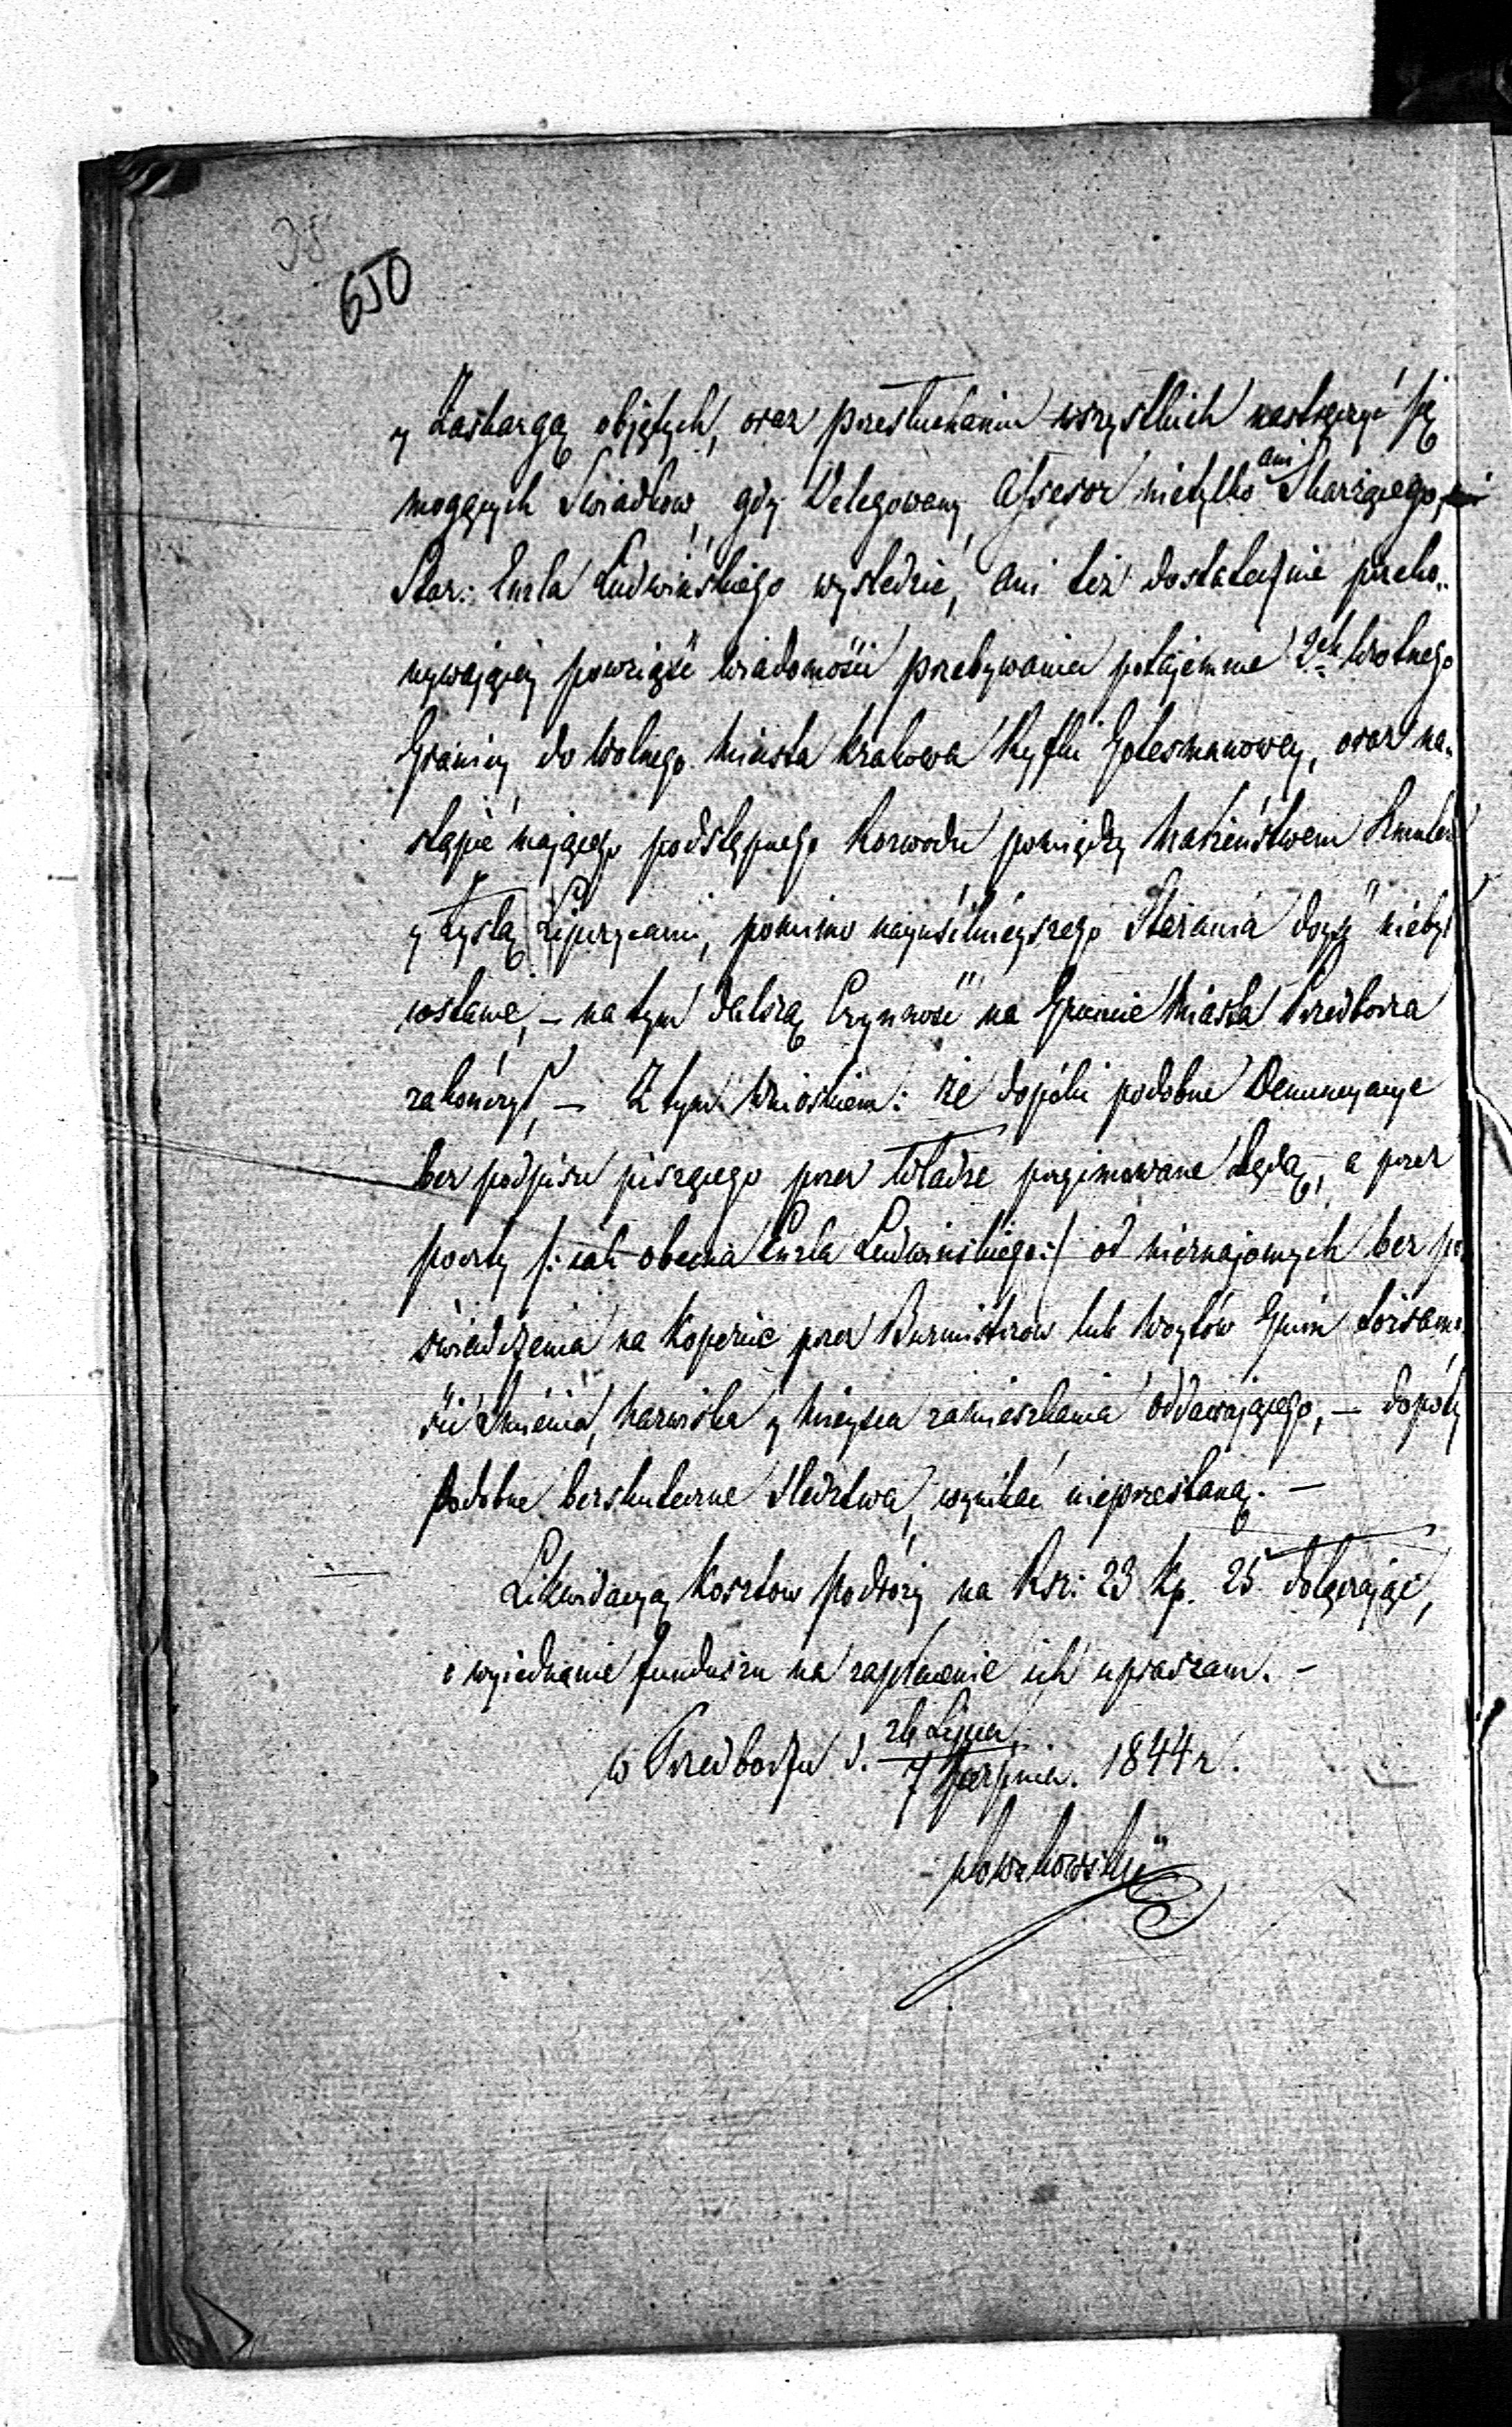 35
650
y Zaskargą objętych, oraz przesłuchaniu wszystkich nastręczyć się
mogących Swiadków, gdy Delegowany Assesor nietylko ani Skarżącego,
Star: Enzla Ludwińskiego wyśledzić, ani też dostatecznie przeko„
nywającey powziąść wiadomości przebywania potajemnie 2ch krotnego
Granicy do Wolnego Miasta Krakowa Ryfki Gotesmanowey, oraz na„
stąpić mającego podstępnego Rozwodu pomiędzy Małżeństwem
y Łysłą Lipszycami, pomimo nayusilnieyszego Starania doyść niebył
wstanie, – na tym dalszą Czynność na Gruncie Miasta Przedborza
zakończył, – Z tym Wnioskiem: że dopóki podobne Denuncyacye
bez podpisu piszącego przez Władze przyimowane będą, a przez
poczty /: iak obecna Enzla Ludwińskiego :/ od nieznajomych bez po
świadczenia na Kopercie przez Burmistrzów lub Woytów Gmin tożsamo
ści Imienia, Nazwiska y Mieysca zamieszkania oddawającego, – dopóty
podobne bezskuteczne Śledztwa, wynikać nieprzestaną. –
Likwidacyą Kosztow podróży na Rsr: 23 kp. 25 dołączając,
o wyiednanie funduszu na zapłacenie ich upraszam. –
w Przedborzu d. 26 Lipca / 7 Sierpnia. 1844 r.